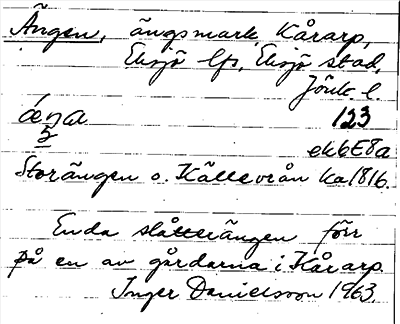 Ängen, ängsmark, Kårarp,
Eksjö lfs, Eksjö stad,
Jönk. l.
123
ek6E8a
Storängen o. Källevrån ka 1816.
Enda slåtterängen förr
på en av gårdarna i Kårarp.
Inger Danielsson 1963.